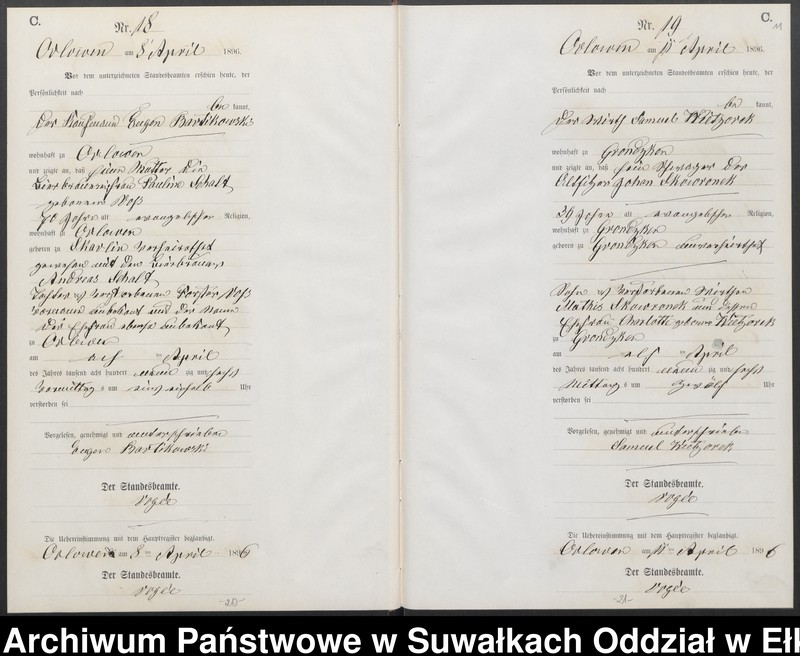 C.
Nr. 18
Orlowen am 8 April 1896.
Vor dem unterzeichneten Standesbeamten erschien heute, der
Persönlichkeit nach
be kannt,
der Kaufmann Eugen Bartikowski
wohnhaft zu Orlowen
und zeigte an, daß seine Mutter die
Bierbrauerfrau Pauline Schalt
geborene Voß
70 Jahre alt evangelischer Religion,
wohnhaft zu Orlowen
geboren zu verheirathet
gewesen mit dem Bierbrauer
Andreas Schalt
Tochter des verstorbenen Förster Voß
Vorname unbekannt und der Name
der Ehefrau ebenso unbekannt
zu Orlowen
am acht ten April
des Jahres tausend acht hundert neun zig und sechs
Vormittags um Uhr
verstorben sei
Vorgelesen, genehmigt und unterschrieben
Eugen Bartikowski
Der Standesbeamte.
Die Uebereinstimmung mit dem Hauptregister beglaubigt.
Orlowen am 8 ten April 1896
Der Standesbeamte.
-20-
C.
Nr. 19
Orlowen am 11 April 1896.
Vor dem unterzeichneten Standesbeamten erschien heute, der
Persönlichkeit nach
be kannt,
der Wirth Samuel Kietzorek
wohnhaft zu Grondzken
und zeigte an, daß sein Schwager der
Altsitzer Johann Skowronek
39 Jahre alt evangelischer Religion,
wohnhaft zu Grondzken
geboren zu Grondzken unverheirathet
Sohn des verstorbenen Wirthen
Mathis Skowronek und dessen
Ehefrau Charlotte geborene Kietzorek
zu Grondzken
am elf ten April
des Jahres tausend acht hundert neun zig und sechs
Mittags um zwölf Uhr
verstorben sei
Vorgelesen, genehmigt und unterschrieben
Samuel Kietzorek
Der Standesbeamte.
Die Uebereinstimmung mit dem Hauptregister beglaubigt.
Orlowen am 11 ten April 1896
Der Standesbeamte.
-21-
Archiwum Państwowe w Suwałkach Oddział w Ełk